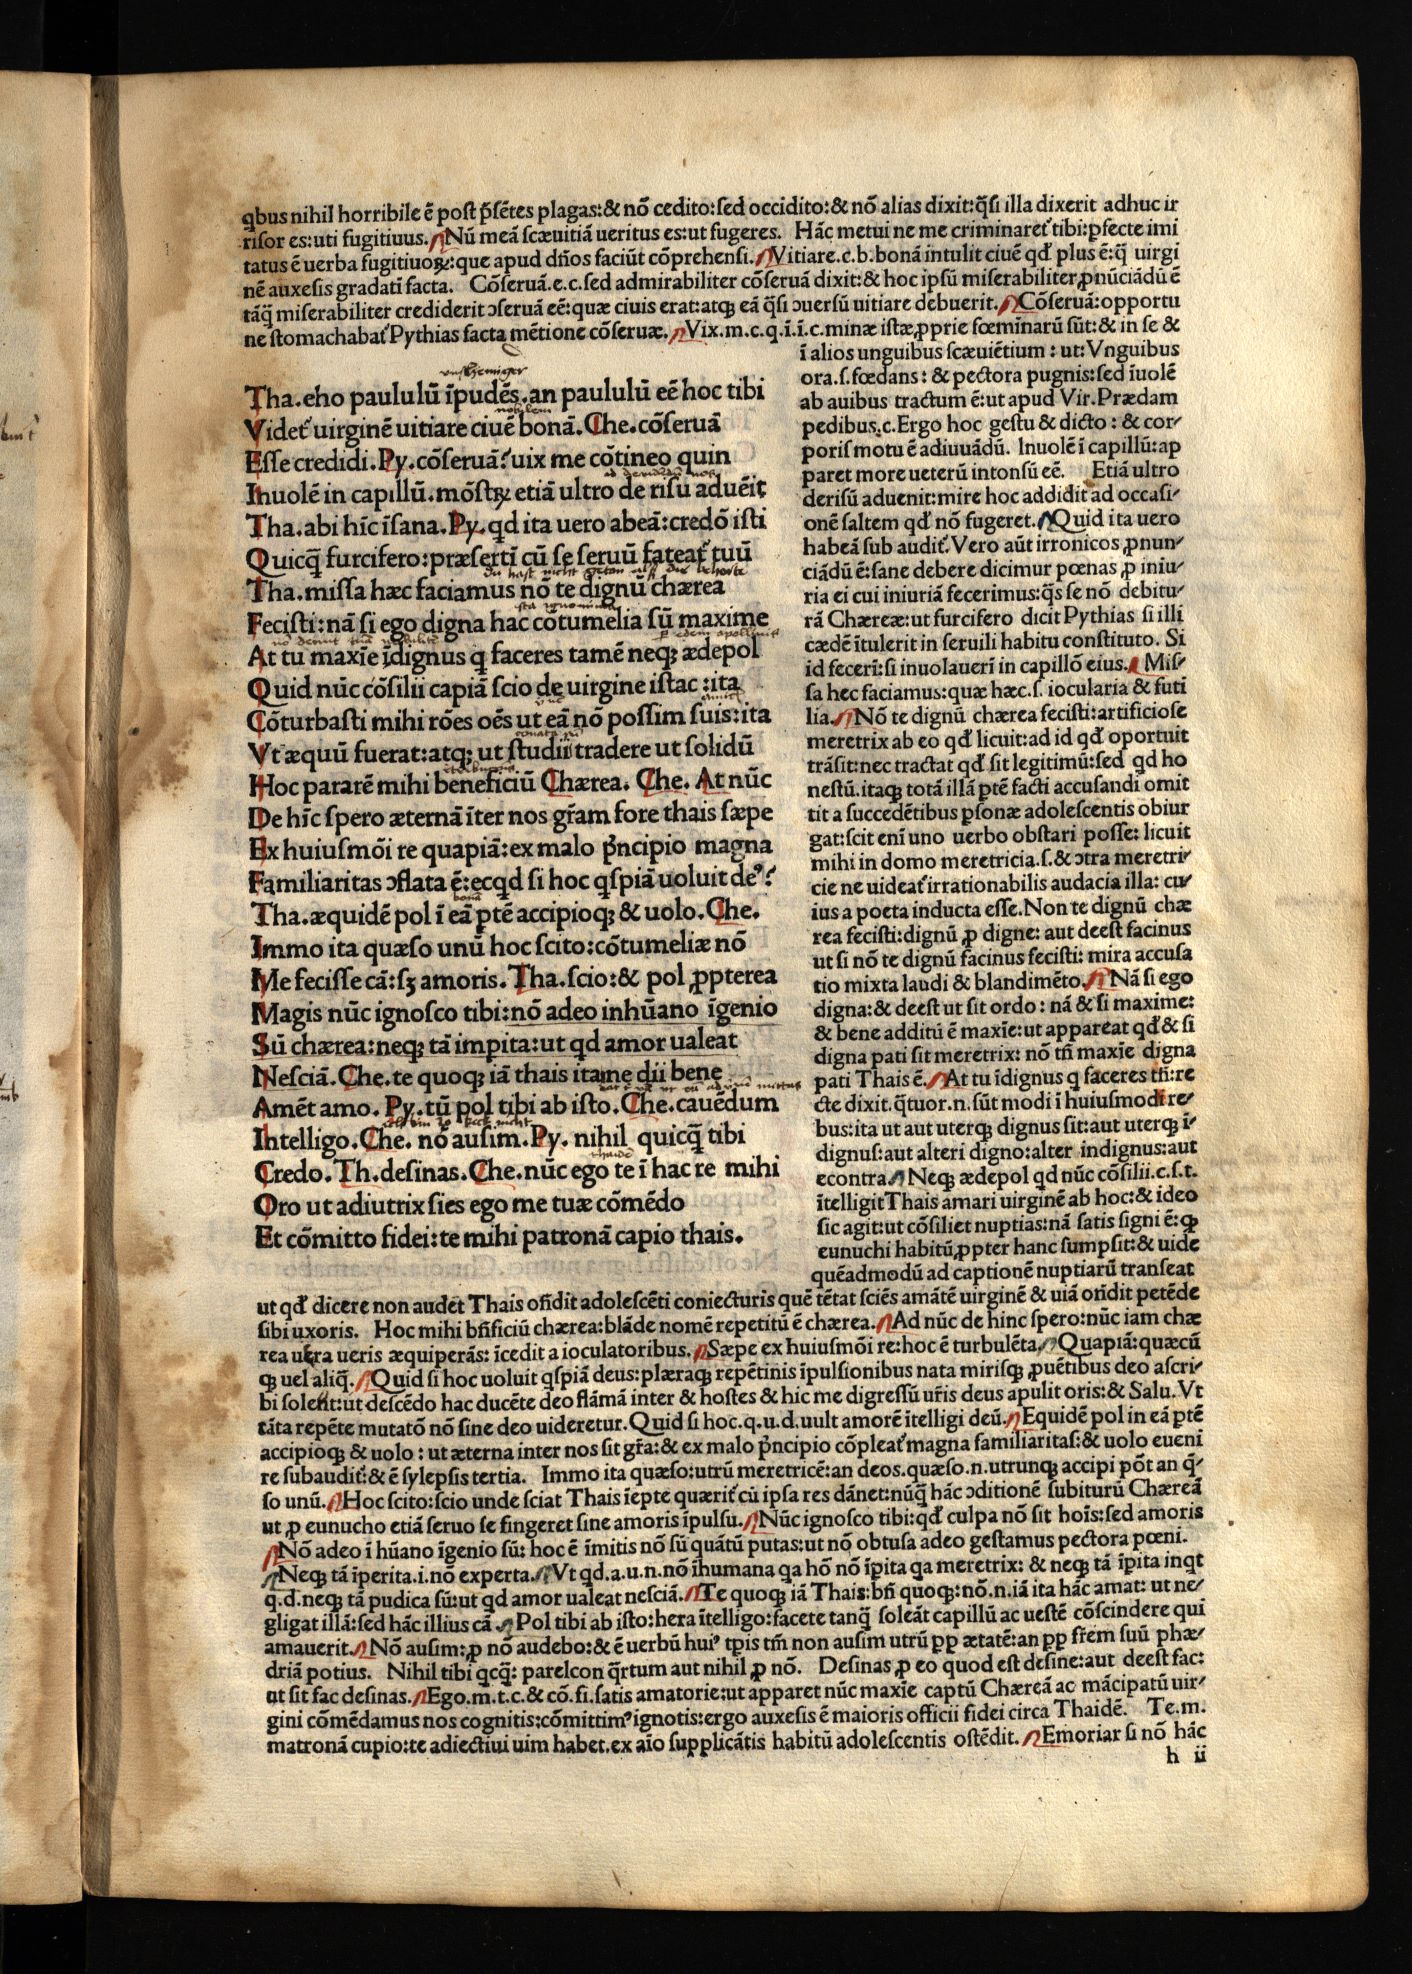 qbus nihil horribile ē post p̄sētes plagas:& nō cedito:sed occidito:& nō alias dixit:q̄si illa dixerit adhuc ir
risor es:uti fugitiuus. Nū meā scæuitiā ueritus es:ut fugeres. Hāc metui ne me criminaret᷑ tibi:ꝑfecte imi
tatus ē uerba fugitiuoꝝ:que apud dn̄os faciūt cōprehensi. Vitiare.c.b:bonā intulit ciuē qđ plus ē:q̄ uirgi
nē auxesis gradatī facta. Cōseruā.e.c.sed admirabiliter cōseruā dixit:& hoc ipsū miserabiliter ꝓnūciādū ē
tāq̄ miserabiliter crediderit ↄseruā eē:quæ ciuis erat:atqꝫ eā q̄si ↄuersū uitiare debuerit. Cōseruā:opportu
ne stomachabat᷑ Pythias facta mētione cōseruæ. Vix.m.c.q.ī.ī.c.minæ istæ ꝓprie fœminarū sūt:& in se &
ī alios unguibus scæuiētium : ut: Vnguibus
ora.s.fœdans: & pectora pugnis:sed īuolē
ab auibus tractum ē:ut apud Vir.Prædam
pedibus.c.Ergo hoc gestu & dicto : & cor-
poris motu ē adiuuādū. Inuolē ī capillū:ap
paret more ueterū intonsū eē. Etiā ultro
derisū aduenit:mire hoc addidit ad occasi-
onē saltem qđ nō fugeret. Quid ita uero
habeā sub audit᷑. Vero aūt irronicos ꝓnun-
ciādū ē:sane debere dicimur pœnas ꝓ iniu-
ria ei cui iniuriā fecerimus:q̄s se nō debitu-
rā Chæreæ:ut furcifero dicit Pythias si illi
cædē ītulerit in seruili habitu constituto. Si
id fecerī:si inuolauerī in capillō eius. Mis-
sa hec faciamus:quæ hæc.s. iocularia & futi
lia. Nō te dignū chærea fecisti:artificiose
meretrix ab eo qđ licuit:ad id qđ oportuit
trāsit:nec tractat qđ sit legitimū:sed qđ ho
nestū.itaqꝫ totā illā ꝑtē facti accusandi omit
tit a succedētibus ꝑsonæ adolescentis obiur
gat:scit enī uno uerbo obstari posse: licuit
mihi in domo meretricia.s.& ↄtra meretri-
cie ne uideat᷑ irrationabilis audacia illa: cu-
ius a poeta inducta esse.Non te dignū chæ
rea fecisti:dignū ꝓ digne: aut deest facinus
ut si nō te dignū facinus fecisti: mira accusa
tio mixta laudi & blandimēto. Nā si ego
digna:& deest ut sit ordo : nā & si maxime:
& bene additū ē maxīe:ut appareat qđ & si
digna pati sit meretrix: nō tn̄ maxīe digna
pati Thais ē. At tu īdignus q faceres tn̄:re
cte dixit.q̄tuor.n.sūt modi ī huiusmodi re-
bus:ita ut aut uterqꝫ dignus sit:aut uterqꝫ ī-
dignus:aut alteri digno:alter indignus:aut
econtra. Neqꝫ ædepol qd nūc cōsilii.c.s.t.
ītelligit Thais amari uirginē ab hoc:& ideo
sic agit:ut cōsiliet nuptias:nā satis signi ē:ꝙ
eunuchi habitū ꝓpter hanc sumpsit:& uide
quēadmodū ad captionē nuptiarū transeat
Tha.eho paululū īpudēs.an paululū eē hoc tibi
Videt᷑ uirginē uitiare ciuē bonā. Che.cōseruā
Esse credidi. Py.cōseruā? uix me cōtineo quin
Inuolē in capillū.mōstꝝ etiā ultro de risu aduēit
Tha.abi hīc īsana. Py.qd ita uero abeā:credō isti
Quicq̄ furcifero:præsertī cū se seruū fateat᷑ tuū
Tha.missa hæc faciamus nō te dignū chærea
Fecisti:nā si ego digna hac cōtumelia sū maxime
At tu maxīe īdignus q faceres tamē neqꝫ ædepol
Quid nūc cōsilii capiā scio de uirgine istac :ita
Cōturbasti mihi rōes oēs ut eā nō possim suis:ita
Vt æquū fuerat:atqꝫ ut studii tradere ut solidū
Hoc pararē mihi beneficiū Chærea. Che. At nūc
De hīc spero æternā īter nos gr̄am fore thais sæpe
Ex huiusmōi re quapiā:ex malo p̄ncipio magna
Familiaritas ↄflata ē:ecqd si hoc qspiā uoluit deꝰ?
Tha.æquidē pol ī eā ꝑtē accipioqꝫ & uolo. Che.
Immo ita quæso unū hoc scito:cōtumeliæ nō
Me fecisse cā:sꝫ amoris. Tha.scio:& pol ꝓpterea
Magis nūc ignosco tibi:nō adeo inhūano īgenio
Sū chærea:neqꝫ tā imꝑita:ut qd amor ualeat
Nesciā. Che.te quoqꝫ iā thais itame dii bene
Amēt amo. Py.tū pol tibi ab isto. Che.cauēdum
Intelligo. Che. nō ausim. Py. nihil quicq̄ tibi
Credo. Th.desinas. Che.nūc ego te ī hac re mihi
Oro ut adiutrix sies ego me tuæ cōmēdo
Et cōmitto fidei:te mihi patronā capio thais.
ut qđ dicere non audet Thais on̄dit adolescēti coniecturis quē tētat sciēs amātē uirginē & uiā on̄dit petēde
sibi uxoris. Hoc mihi bn̄ficiū chærea:blāde nomē repetitū ē chærea. Ad nūc de hinc spero:nūc iam chæ
rea uera ueris æquiperās: īcedit a ioculatoribus. Sæpe ex huiusmōi re:hoc ē turbulēta. Quapiā:quæcū
qꝫ uel aliq̄. Quid si hoc uoluit qspiā deus:plæraqꝫ repētinis īpulsionibus nata mirisqꝫ ꝓuētibus deo ascri-
bi solent:ut descēdo hac ducēte deo flāmā inter & hostes & hic me digressū ur̄is deus apulit oris:& Salu. Vt
tāta repēte mutatō nō sine deo uideretur. Quid si hoc.q.u.d.uult amorē ītelligi deū. Equidē pol in eā ꝑtē
accipioqꝫ & uolo : ut æterna inter nos sit gr̄a:& ex malo p̄ncipio cōpleat᷑ magna familiaritas:& uolo eueni
re subaudit᷑:& ē sylepsis tertia. Immo ita quæso:utrū meretricē:an deos.quæso.n.utrunqꝫ accipi pōt an q̄-
so unū. Hoc scito:scio unde sciat Thais īepte quærit᷑ cū ipsa res dānet:nūq̄ hāc ↄditionē subiturū Chæreā
ut ꝓ eunucho etiā seruo se fingeret sine amoris īpulsu. Nūc ignosco tibi:qđ culpa nō sit hoīs:sed amoris
Nō adeo ī hūano īgenio sū: hoc ē īmitis nō sū quātū putas:ut nō obtusa adeo gestamus pectora pœni.
Neqꝫ tā īperita.i.nō experta. Vt qd.a.u.n.nō īhumana qa hō nō īpita qa meretrix: & neqꝫ tā īpita inqt
q.d.neqꝫ tā pudica sū:ut qd amor ualeat nesciā. Te quoqꝫ iā Thais:bn̄ quoqꝫ:nō.n.iā ita hāc amat: ut ne-
gligat illā:sed hāc illius cā. Pol tibi ab isto:hera ītelligo:facete tanq̄ soleāt capillū ac uestē cōscindere qui
amauerit. Nō ausim:ꝓ nō audebo:& ē uerbū huiꝰ tꝑis tm̄ non ausim utrū ꝓꝑ ætatē:an ꝓꝑ fr̄em suū phæ-
driā potius. Nihil tibi qcq̄: parelcon q̄rtum aut nihil ꝓ nō. Desinas ꝓ eo quod est desine:aut deest fac:
ut sit fac desinas. Ego.m.t.c.& cō.fi.satis amatorie:ut apparet nūc maxīe captū Chæreā ac mācipatū uir-
gini cōmēdamus nos cognitis:cōmittimꝰ ignotis:ergo auxesis ē maioris officii fidei circa Thaidē. Te.m.
matronā cupio:te adiectiui uim habet.ex aīo supplicātis habitū adolescentis ostēdit. Emoriar si nō hāc
h ii